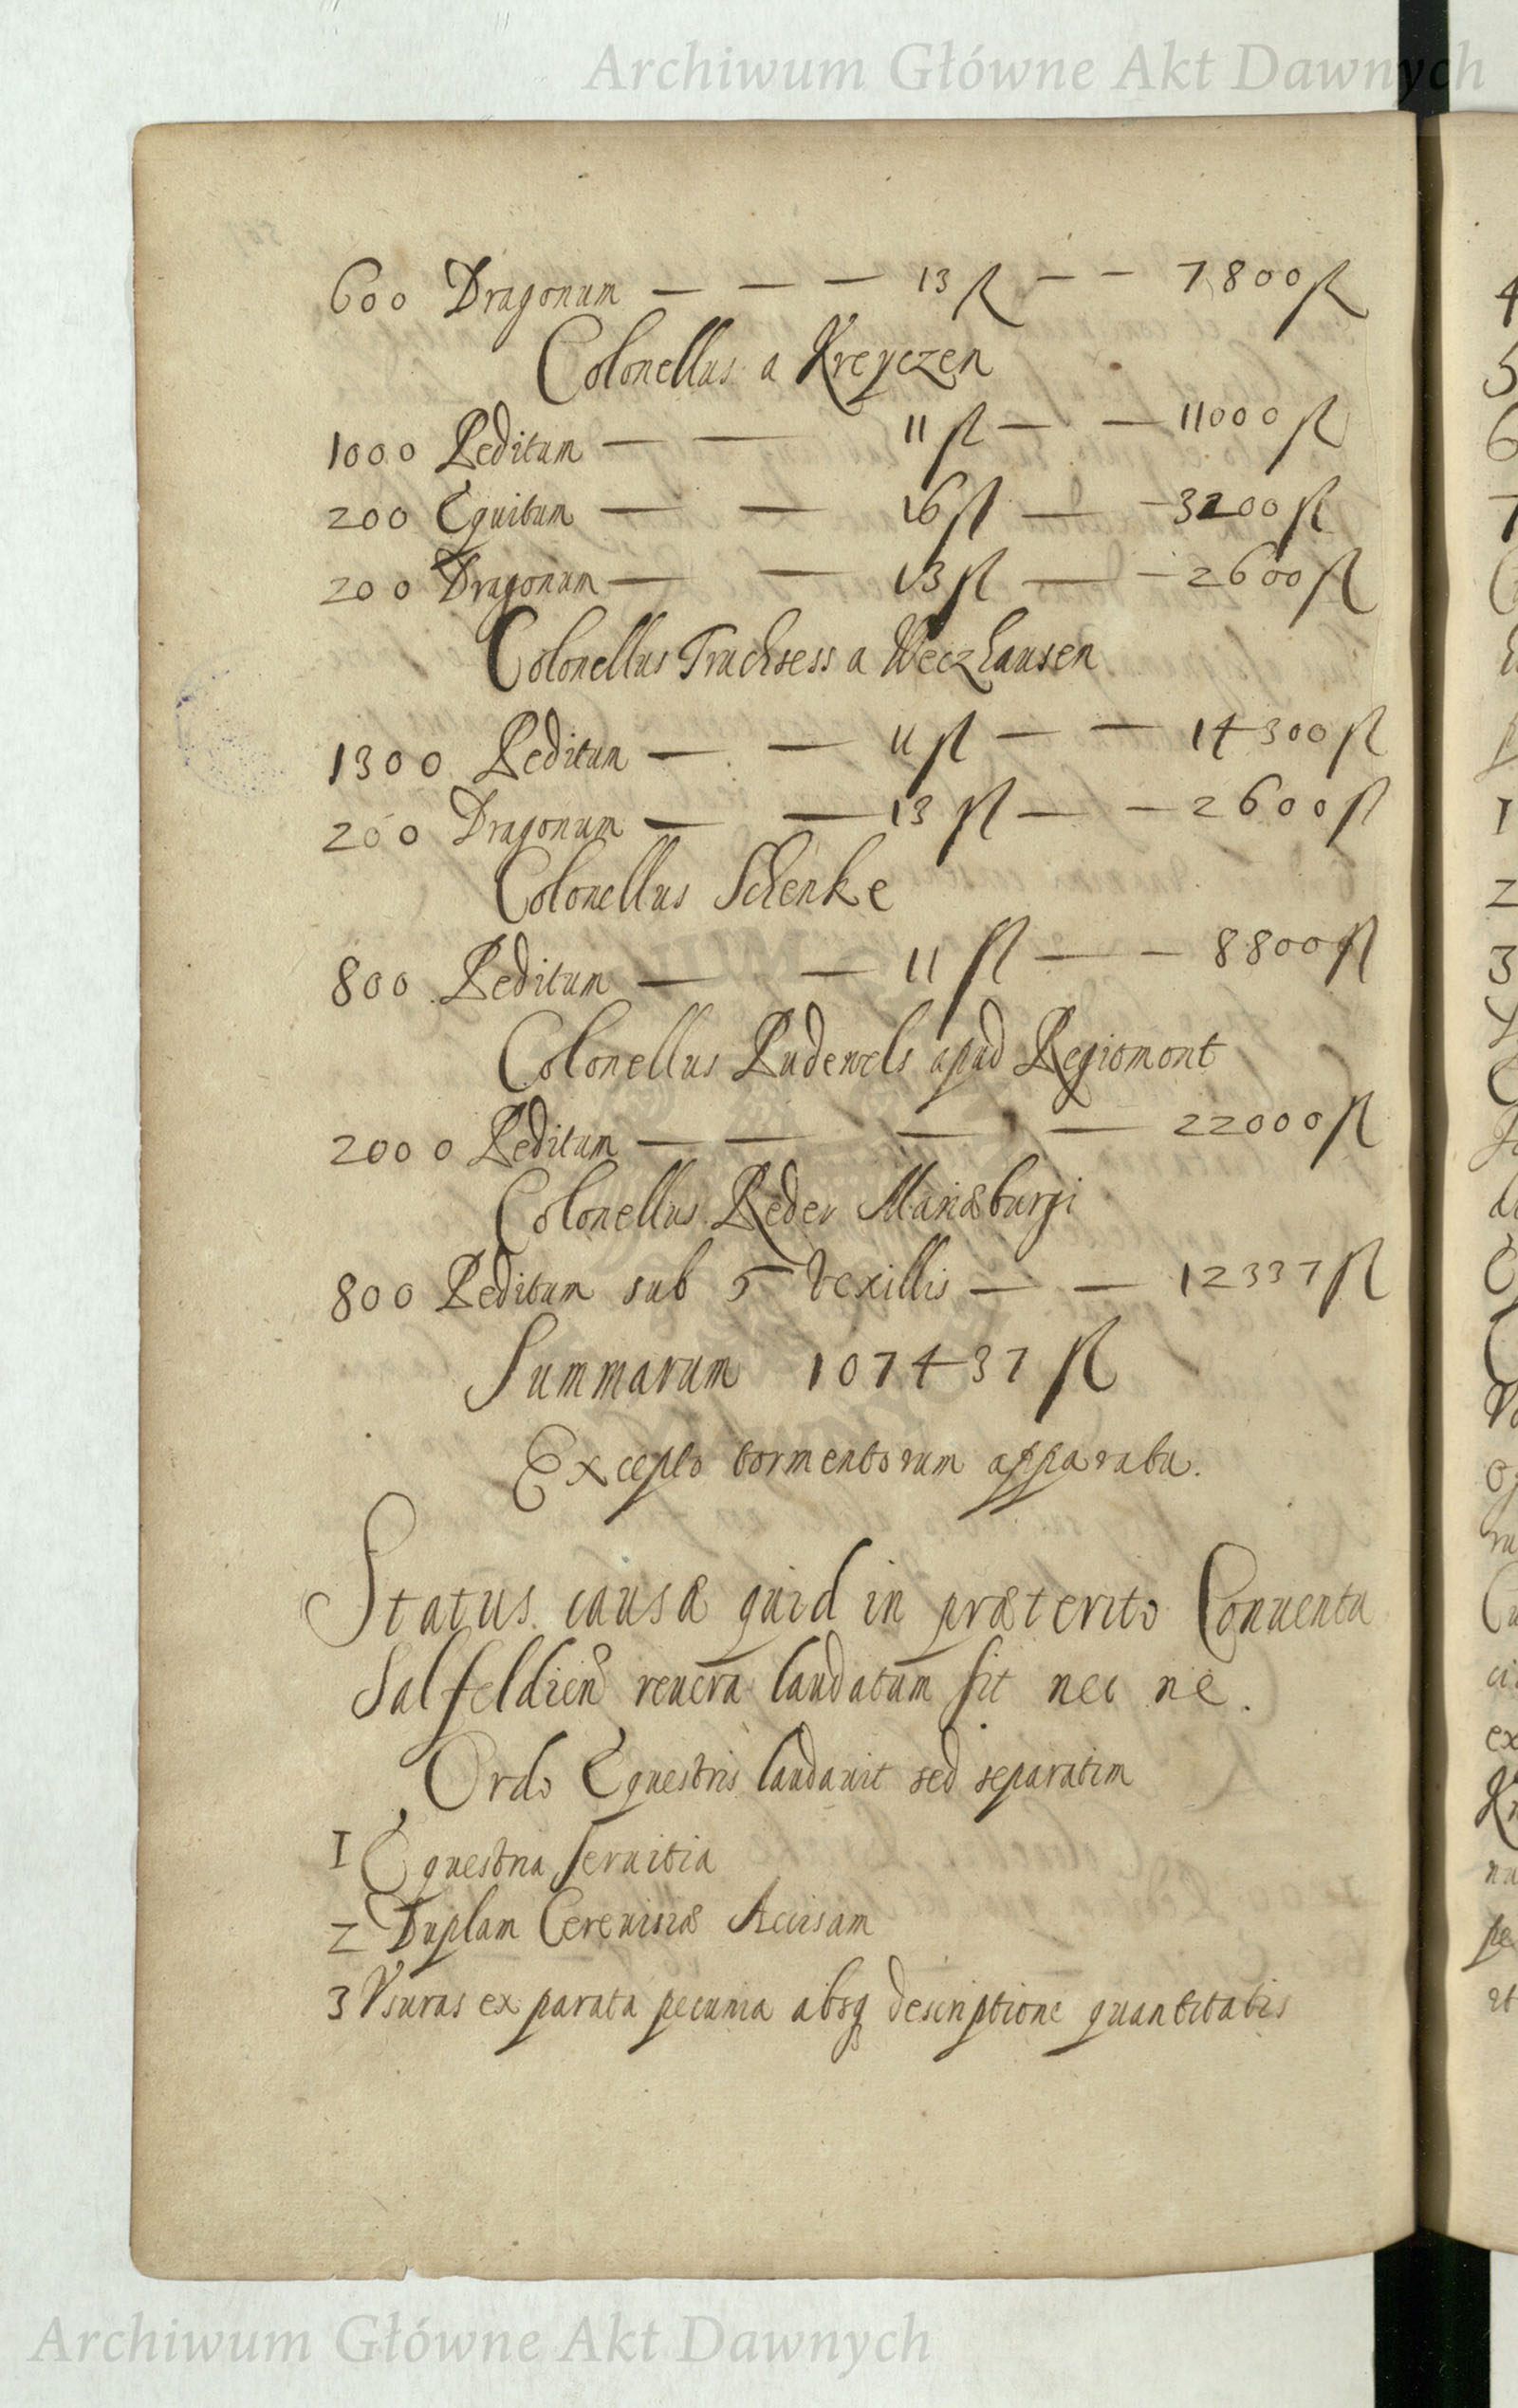 Archiwum Główne Akt Dawnych
600 Dragonum — — — 13 fl — — 7800 fl
Colonellus a Kreyczen
1000 Peditum — — 11 fl — — 11000 fl
200 Equitum — — 16 fl — — 3200 fl
200 Dragonum — — 13 fl — — 2600 fl
Colonellus Truchsess a Weczhausen
1300 Peditum — — 11 fl — — 14300 fl
200 Dragonum — — 13 fl — — 2600 fl
Colonellus Schenke
800 Peditum — — 11 fl — — 8800 fl
Colonellus Pudewels apud Regiomont
2000 Peditum — — — — 22000 fl
Colonellus Reder Mariæburgi
800 Peditum sub 5 vexillis — — 12337 fl
Summarum 107437 fl
Excepto tormentorum apparatu.
Status causæ quid in præterito Conuentu
Salfeldien reuera laudatum sit nec ne.
Ordo Equestris laudauit sed separatim
1 Equestria seruitia
2 Duplam Cereuisiæ Accisam
3 Vsuras ex parata pecunia absq descriptione quantitatis
Archiwum Główne Akt Dawnych